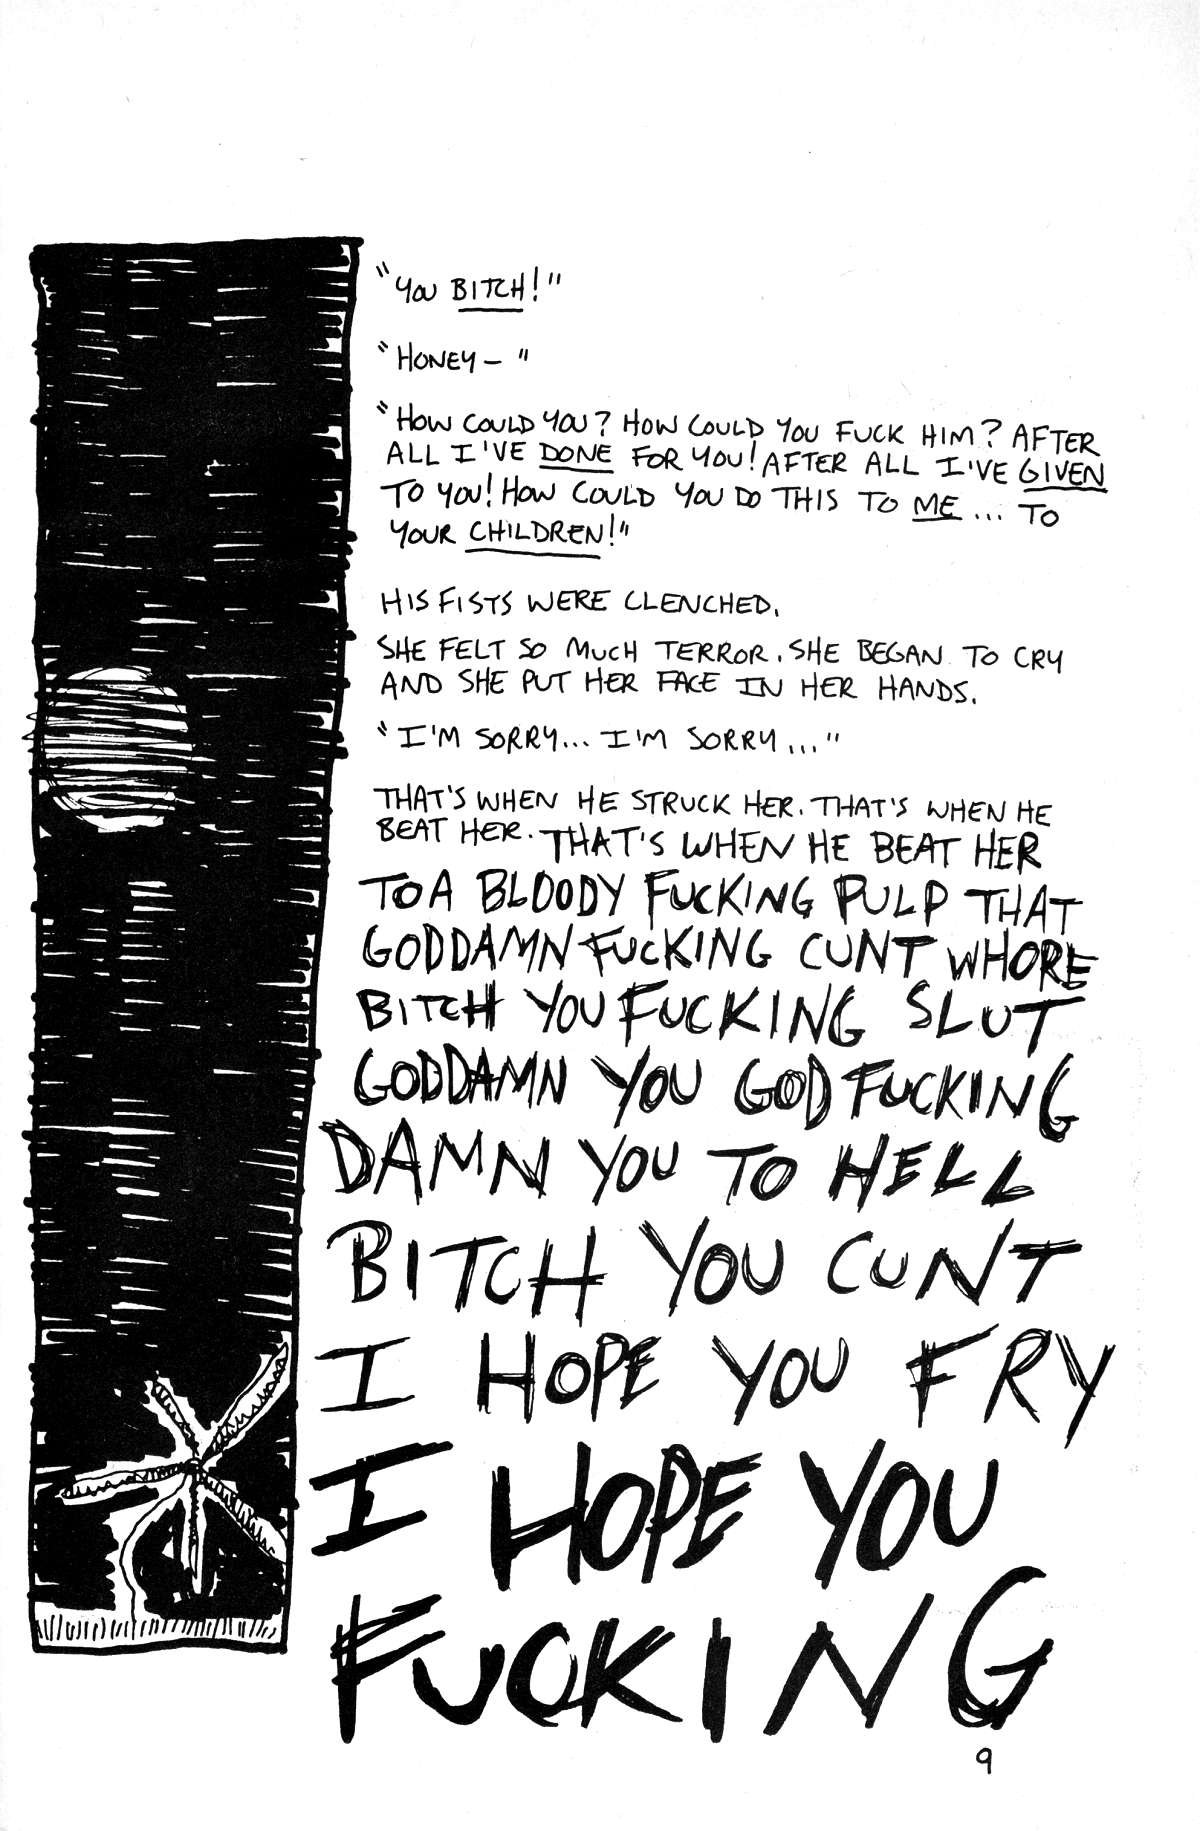 "YOU BITCH!"
"HONEY— "
"HOW COULD YOU? HOW COULD YOU FUCK HIM? AFTER
ALL I'VE DONE FOR YOU! AFTER ALL I'VE GIVEN
TO YOU! HOW COULD YOU DO THIS TO ME ... TO
YOUR CHILDREN!"
HIS FISTS WERE CLENCHED.
SHE FELT SO MUCH TERROR. SHE BEGAN TO CRY
AND SHE PUT HER FACE IN HER HANDS.
"I'M SORRY... I'M SORRY..."
THAT'S WHEN HE STRUCK HER. THAT'S WHEN HE
BEAT HER. THAT'S WHEN HE BEAT HER
TO A BLOODY FUCKING PULP THAT
GODDAMN FUCKING CUNT WHORE
BITCH YOU FUCKING SLUT
GODDAMN YOU GOD FUCKING
DAMN YOU TO HELL
BITCH YOU CUNT
I HOPE YOU FRY
I HOPE YOU
FUCKING
9